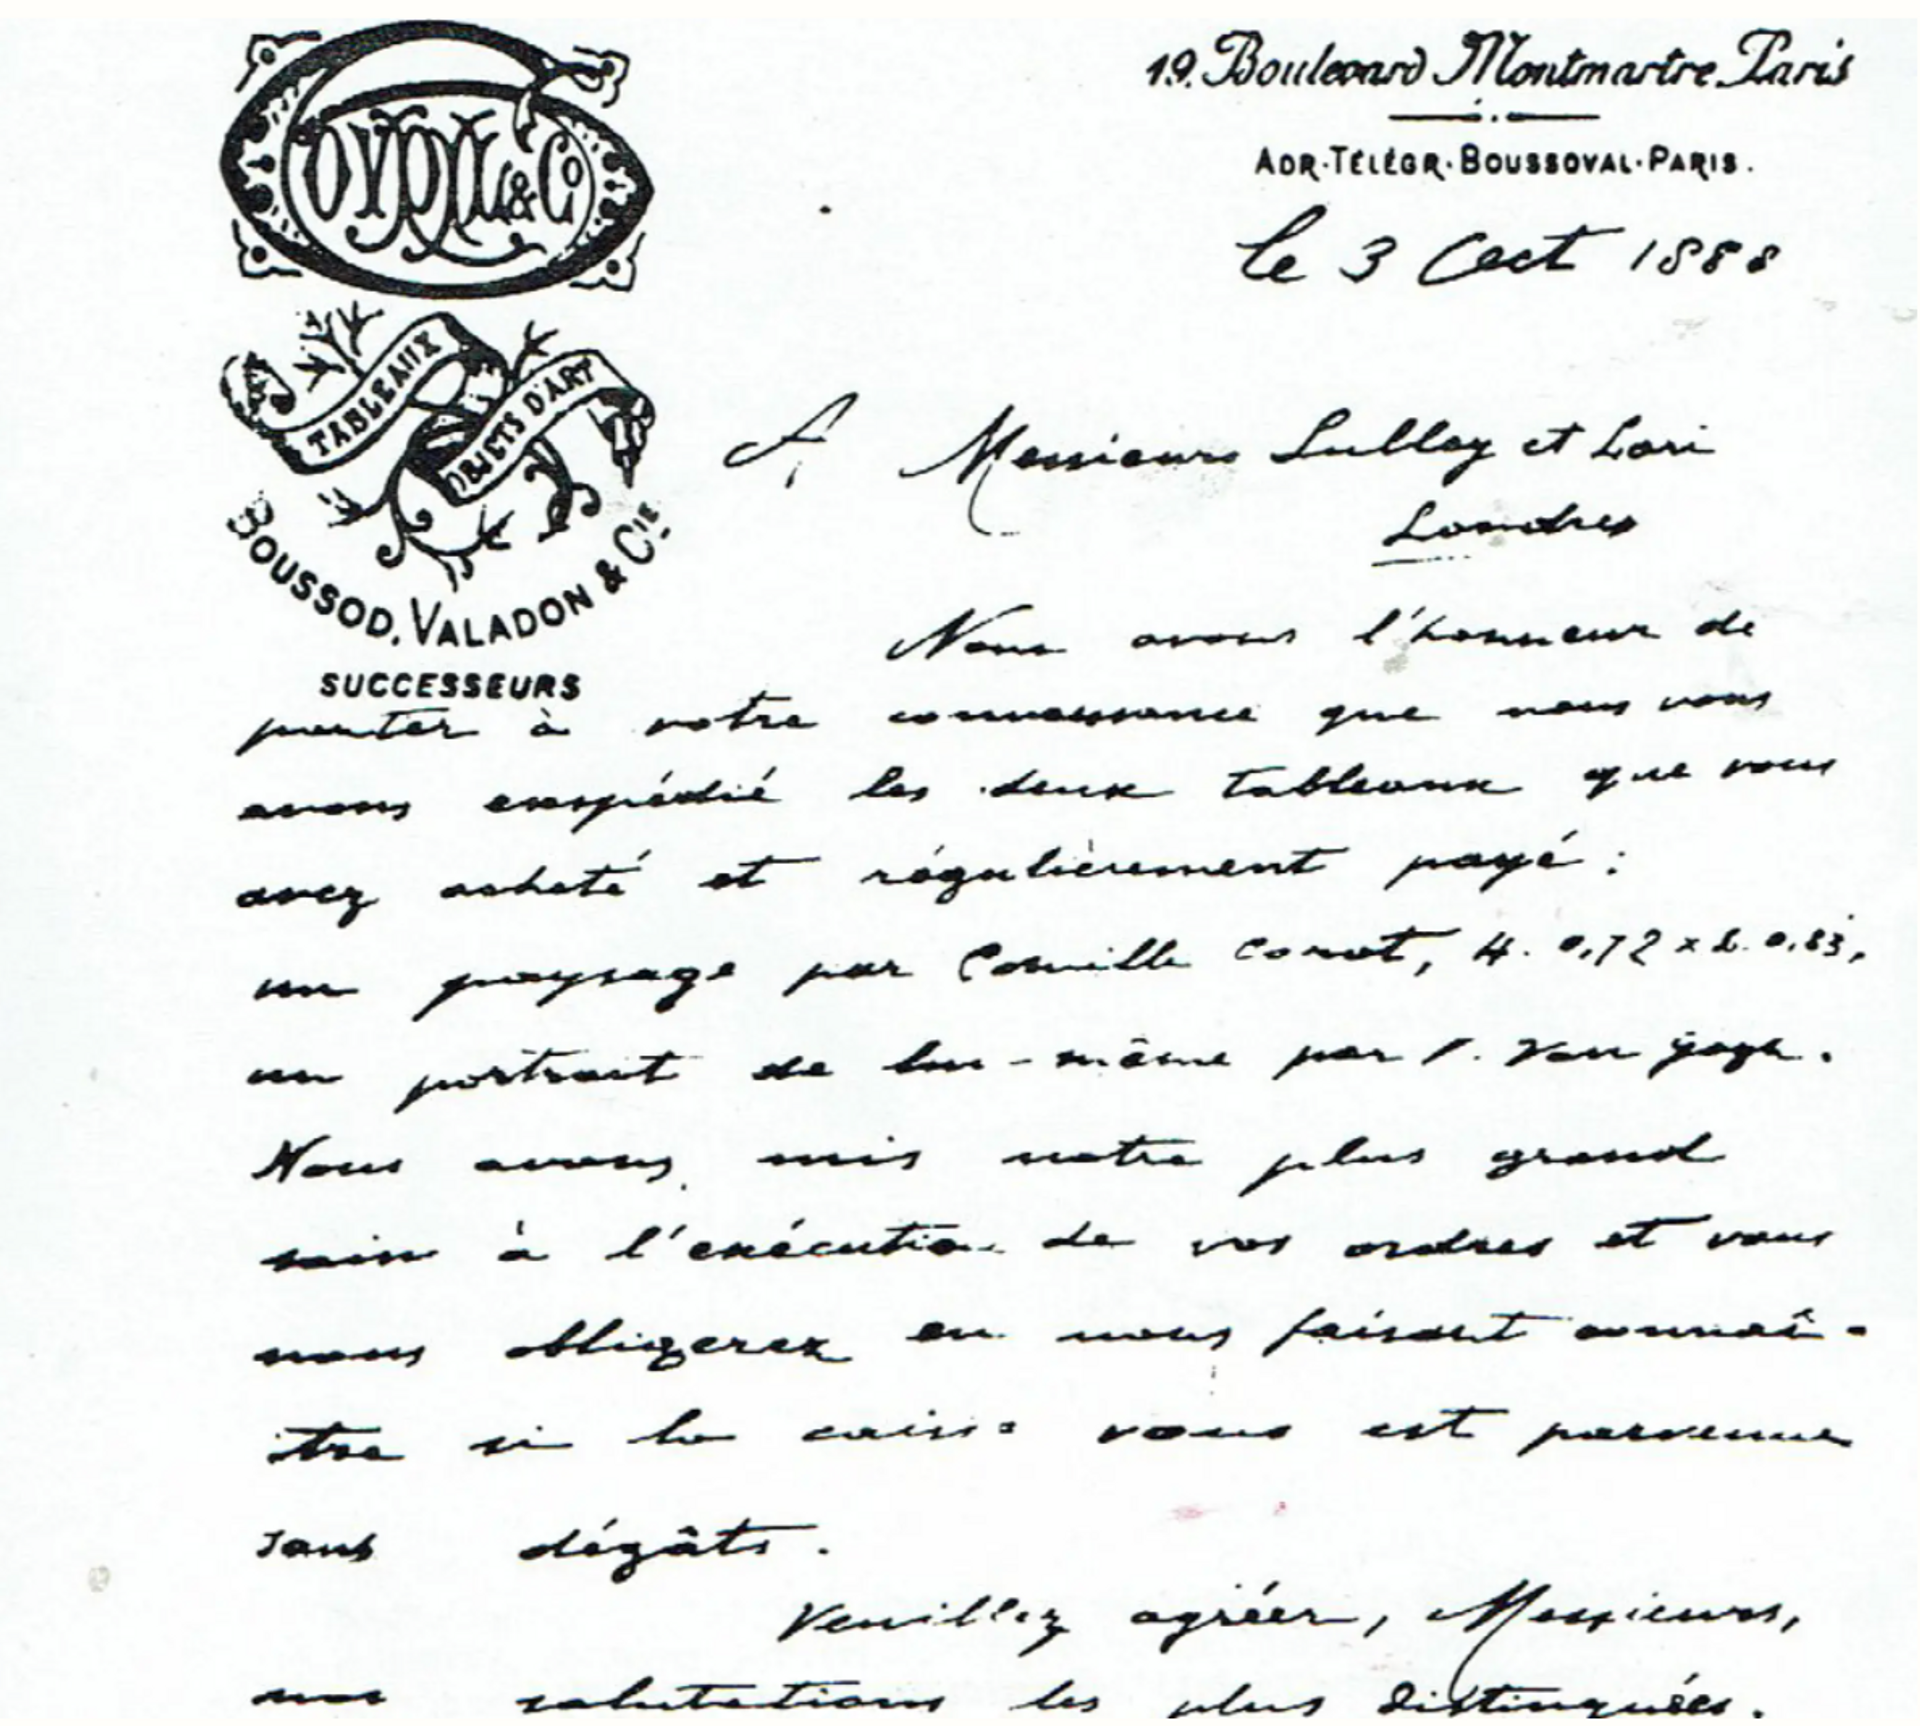 GOUPIL & Co
19. Boulevard Montmartre. Paris
ADR. TÉLÉGR. BOUSSOVAL. PARIS.
le 3 Oct 1888
TABLEAUX
OBJETS D'ART
BOUSSOD, VALADON & CIE.
SUCCESSEURS
A Messieurs Sulley et Lori
Londres
Nous avons l'honneur de
porter à votre connaissance que nous vous
avons expédié les deux tableaux que vous
avez acheté et régulièrement payé :
un paysage par Camille Corot, H. 0,72 x L. 0,83,
un portrait de lui-même par V. Van Gogh.
Nous avons mis notre plus grand
soin à l'exécution de vos ordres et vous
nous obligerez en nous faisant connaî-
tre si la caisse vous est parvenue
sans dégâts.
Veuillez agréer, Messieurs,
nos salutations les plus distinguées.